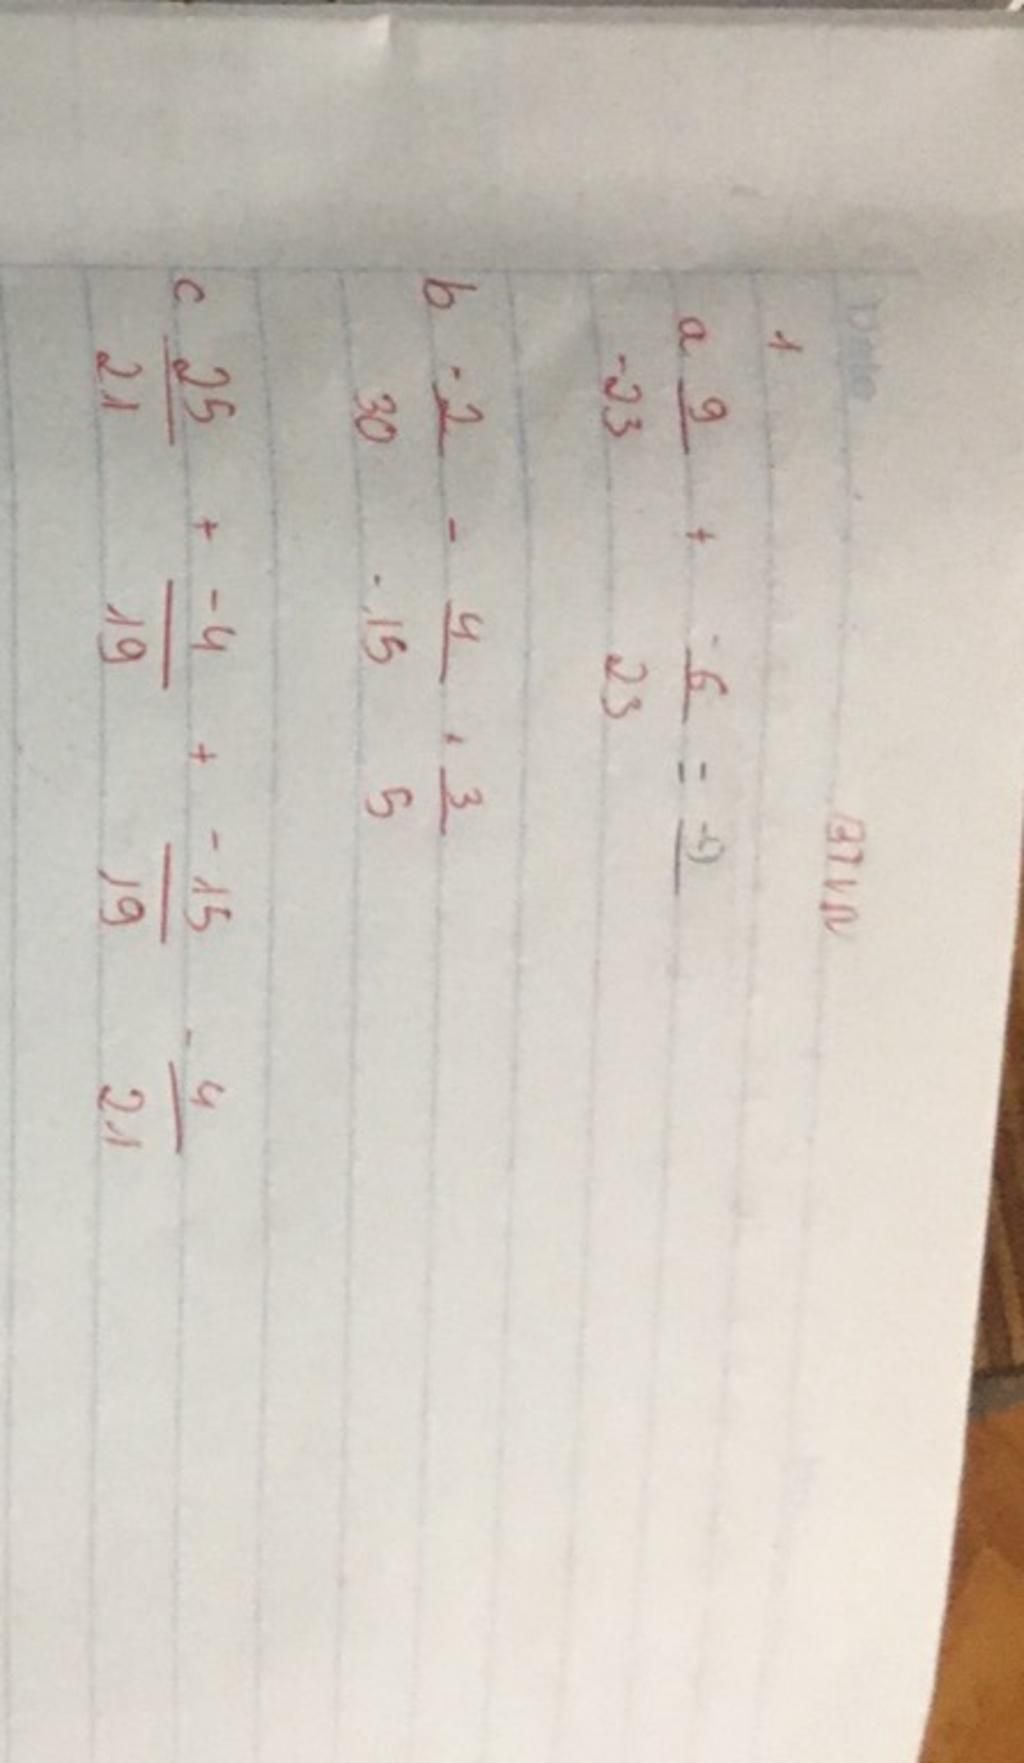 BTVN
1
a 9/-23 + -6/23 = -9/
b -2/30 - 4/-15 . 3/5
c 25/21 + -4/19 + -15/19 - 4/21